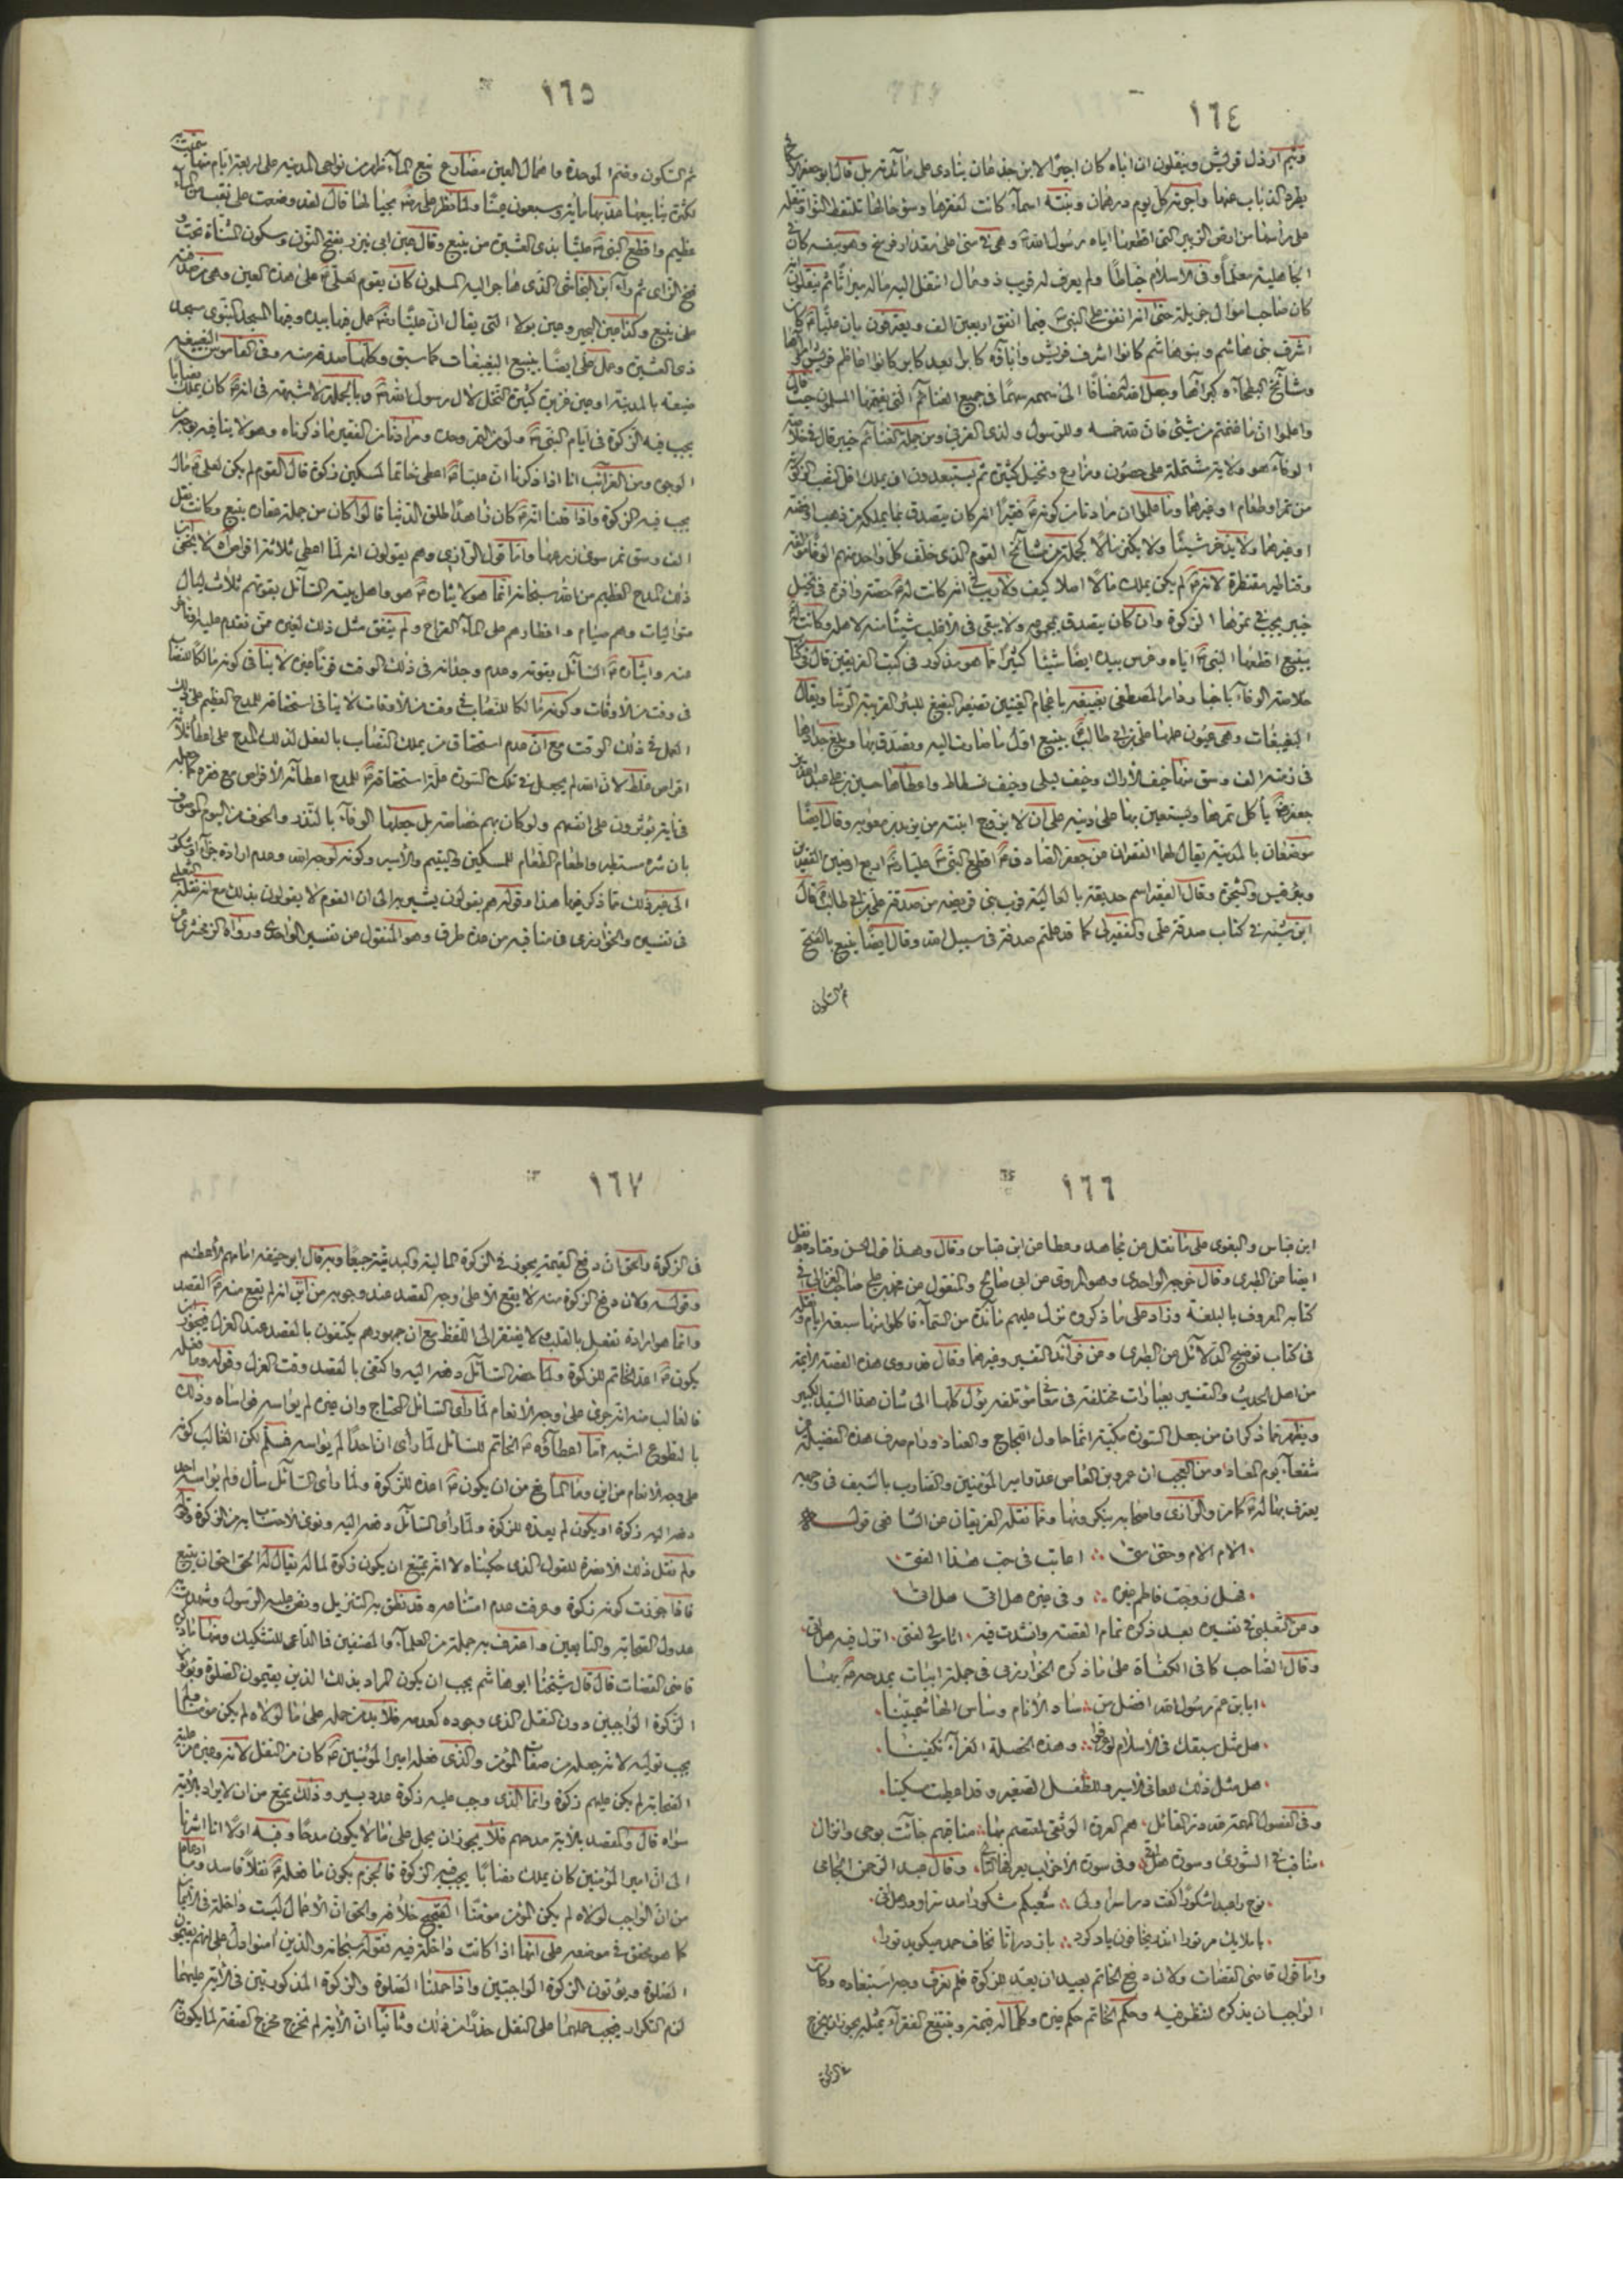 ١٦٤
وتيم ارذل قريش وينقلون ان اباه كان اجيرا لابن جذعان ينادى على مائدته بل قال ابو جعفر
يطرد الذباب عنها واجرته كل يوم درهمان وبنته اسمآء كانت تلتقط النوا وتنقله
على رأسها من ارض الزبير التى اقطعها اياه رسول الله وهى
الجاهلية معلما وفى الاسلام خياطا ولم يعرف له قريب ذو مال انتقل اليه ماله ميراثا ثم ينقلون
كان صاحب اموال جزيلة حتى انه انفق على النبى اربعين الف ويعترفون بان عليا كان
اشرف بنى هاشم وبنو هاشم كانوا اشرف قريش وابآؤه كابرا بعد كابر كانوا اعاظم قريش
ومشائخ البطحآء وكبرآئها وجعل الله مضافا الى سهمه سهما فى جميع الغنائم التى يغنمها المسلمون حيث قال
واعلموا ان ما غنمتم من شئ فان لله خمسه وللرسول ولذى القربى ومن جملة الغنائم خيبر قال فى خلاصة
الوفآء هو ولاية مشتملة على حصون ومزارع ونخيل كثيرة ثم يستبعدون ان يملك اقل نصب الزكوة
من تمر او طعام او غيرهما وما علموا ان مرادنا من كونه فقيرا انه كان يتصدق بما يملكه من ذهب او فضة
او غيرهما ولا يدخر شيئا ولا يكنز مالا كجملة من مشائخ القوم الذى خلف كل واحد منهم
وقناطير مقنطرة لا انه لم يكن يملك مالا اصلا كيف ولا ريب فى انه كانت له حصة وافرة فى نخيل
خيبر يجب فى تمرها الزكوة وان كان يتصدق بمجموعه ولا يبقى فى الاغلب شيئا منه لاهله وكانت
بينبع اقطعها النبى اياه وغرس بيده ايضا شيئا كثيرا كما هو مذكور فى كتب الفريقين قال فى
خلاصة الوفآء باخبار دار المصطفى بغيبغة باعجام الغينين تصغير البغبغ للبئر القريبة الرشا ويقال
البغيبغات وهى عيون عملها على بن ابى طالب بينبع اول ما صارت اليه وتصدق بها وبلغ جدادها
فى زمنه الف وسق منها خيف الاراك وخيف ليلى وخيف بسطاس واعطاها حسين بن على عبد الله بن
جعفر يأكل تمرها ويستعين بها على دينه على ان لا يزوج ابنته من يزيد بن معوية وقال ايضا
موضعان بالمدينة يقال لهما الفقيران عن جعفر الصادق اقطع النبى عليا اربع ارضين الفقيرين
وبئر قيس والشجرة وقال الفقير اسم حديقة بالعالية قرب بنى قريظة من صدقة على بن ابى طالب قال
ابن شبة فى كتاب صدقة على والفقير لى كما قد علمتم صدقة فى سبيل الله وقال ايضا ينبع بالفتح
ثم السكون
١٦٥
ثم السكون وضم الموحدة واهمال العين مضارع نبع المآء ظهر من نواحى المدينة على اربعة ايام منها سميت
لكثرة ينابيعها عد بها مائة وسبعون عينا ولما نظر على جبالها قال لقد وضعت على نقب من المآء
عظيم واقطع النبى عليا بذى العشيرة من ينبع وقال عين ابى نيزر بفتح النون وسكون المثناة تحت و
فتح الزاى ثم رآء ابن النجاشى الذى هاجر اليه المسلمون كان يقوم لعلى على هذه العين وهى من صدقة
على بينبع وكذا عين البحير وعين بولا التى يقال ان عليا عمل فيها بيده وفيها المسجد النبوى مسجد
ذى العشيرة وعمل على ايضا بينبع البغيبغات كما سبق وكلها صدقة منه وفى القاموس البغيبغة
ضيعة بالمدينة او عين غزيرة كثيرة النخل لآل رسول الله وبالجملة لا شبهة فى انه كان يملك نصابا
يجب فيه الزكوة فى ايام النبى ولو من التمر وحده ومرادنا من الفقير ما ذكرناه وهو لا ينافيه بوجه من
الوجوه ومن الغرائب انا اذا ذكرنا ان عليا اعطى خاتما لمسكين زكوة قال القوم لم يكن لعلى مال
يجب فيه الزكوة واذا قلنا انه كان زاهدا طلق الدنيا قالوا كان من جملة عقاره ينبع وكانت تغل
الف وسق تمر سوى زرعها واما قول الرازى وهم يقولون انه لما اعطى ثلاثة اقراص لا يخفى ان
ذلك المدح العظيم من الله سبحانه انما هو لايثاره هو واهل بيته السآئل بقوتهم ثلاث ليال
متواليات وهم صيام وافطارهم على المآء القراح ولم يتفق مثل ذلك لغيره ممن تقدم عليه
منه وايثاره السآئل بقوته وعدم وجدانه فى ذلك الوقت قوتا غيره لا ينافى كونه مالكا للنصاب
فى وقت من الاوقات وكونه مالكا للنصاب فى وقت من الاوقات لا ينافى استحقاقه للمدح العظيم على ذلك
العمل فى ذلك الوقت مع ان عدم استحقاق من يملك النصاب بالفعل لذلك المدح على اعطآء ثلاثة
اقراص غلط لان الله لم يجعل فى تلك السورة علة استحقاقه للمدح اعطآئه الاقراص مع فقره
فى آية يؤثرون على انفسهم ولو كان بهم خصاصة بل جعلها الوفآء بالنذر والخوف من اليوم الموصوف
بان شره مستطير واطعام الطعام للمسكين واليتيم والاسير وكونه لوجه الله وعدم ارادة جزآء او شكور
الى غير ذلك مما ذكر فيها هذا وقوله هم يقولون يشير به الى ان القوم لا يقولون بذلك مع انه نقله الثعلبى
فى تفسيره والخوارزمى فى مناقبه من عدة طرق وهو المنقول من تفسير الواحدى ورواه الزمخشرى عن
١٦٦
ابن عباس والبغوى على ما نقل عن مجاهد وعطا عن ابن عباس وقال وهذا قول الحسن وقتادة ونقل
ايضا عن الطبرى وقال خرجه الواحدى وهو المروى عن ابى صالح والمنقول عن محمد بن على صاحب الغزالى فى
كتابه المعروف بالبلغة وزاد على ما ذكروه نزول عليهم مائدة من السمآء فاكلوا منها سبعة ايام
فى كتاب توضيح الدلآئل عن الطبرى وعن فرآئد التفسير وغيرهما وقال قد روى هذه القصة الائمة
من اهل الحديث والتفسير بعبارات مختلفة فى معان مؤتلفة يؤل كلها الى شان هذا السيد الكبير
ويظهر مما ذكر ان من جعل السورة مكية انما حاول اللجاج والعناد ورام صرف هذه الفضيلة عن
شفعآء يوم المعاد ومن العجب ان عمرو بن العاص عدو امير المؤمنين والضارب بالسيف فى وجهه
يعترف بها له كما مر والرازى واصحابه ينكرونها ومما نقله الفريقان عن الشافعى قوله
الام الام وحتى متى ∴ اعاتب فى حب هذا الفتى
فهل زوجت فاطم غيره ∴ وفى غيره هل اتى هل اتى
وعن الثعلبى فى تفسيره بعد ذكره تمام القصة وانشدت فيه . انا مولى لفتى . انزل فيه هل اتى .
وقال الصاحب كافى الكفاة على ما ذكره الخوارزمى فى جملة ابيات يمدحه بها
ايا ابن عم رسول الله افضل من ∴ ساد الانام وساس الهاشميينا .
هل مثل سبقك فى الاسلام لو عرفوا ∴ وهذه الخصلة الغرآء تكفينا .
هل مثل ذلك للعانى الاسير وللطفل الصغير وقد اعطيت مسكينا .
وفى الفصول المهمة لله در القائل . هم العروة الوثقى لمعتصم بها ∴ مناقبهم جائت بوحى وانزال
مناقب فى الشورى وسورة هل اتى وفى سورة الاحزاب يعرفها التالى . وقال عبد الرحمن الجامى
نوح را عبدا شكورا گفت در اسرا ولى ∴ سعيكم مشكور آمد مر ترا در هل اتى .
با ملايك مر خود را انه يخافون ياد كرد ∴ باز در انا نخاف حمد ميكويد ترا .
واما قول قاضى القضات ولان دفع الخاتم بعيد ان يعد للزكوة فلم نعرف وجه استبعاده وكان
الواجب ان يذكره لننظر فيه وحكم الخاتم حكم غيره وكلما له قيمة وينتفع الفقرآء بمثله يجوز ان يخرج
فى الزكوة
١٦٧
فى الزكوة والحق ان دفع القيمة يجوز فى الزكوة المالية والبدنية جميعا وبه قال ابو حنيفه امامهم الاعظم
وقوله ولان دفع الزكوة منه لا يقع الا على وجه القصد عند وجوبه من اين انه لم يقع منه القصد
وانما هو ارادة تفعل بالقلب لا يفتقر الى اللفظ مع ان جمهورهم يكتفون بالقصد عند العزل فيجوز ان
يكون اعد الخاتم للزكوة ولما حضر السآئل دفعه اليه واكتفى بالقصد وقت العزل وقوله وما فعله
فالغالب منه انه جرى على وجه الانعام لما رأى السائل المحتاج وان غيره لم يواسه فواساه وذلك
بالتطوع اشبه انما اعطآؤه الخاتم للسائل لما رأى ان احدا لم يواسه فسلم لكن الغالب كونه
على وجه الانعام من اين وما المانع من ان يكون اعده للزكوة ولما رأى السآئل سأل فلم يواسه احد
دفعه اليه زكوة او يكون لم يعده للزكوة ولما رأى السآئل دفعه اليه ونوى الاحتساب به من الزكوة
فلم نقل ذلك الا نصرة للقول الذى حكيناه ولا انه يمتنع ان يكون زكوة لماله يقال له الحق احق ان يتبع
فاذا جوزت كونه زكوة وعرفت عدم امتناعه وقد نطق به التنزيل ونص عليه الرسول وشهدت به
عدول الصحابة والتابعين واعترف به جملة من العلمآء والمصنفين فما الداعى للتشكيك ومنها
قاضى القضات قال قال شيخنا ابو هاشم يجب ان يكون المراد بذلك الذين يقيمون الصلوة ويؤتون
الزكوة الواجبين دون النفل الذى وجوده كعدمه فلا بد من حمله على ما لولاه لم يكن مؤمنا ولم
يجب توليه لانه جعله من صفات المؤمن والذى فعله امير المؤمنين كان من النفل لانه وغيره من جلة
الصحابة لم يكن عليهم زكوة وانما الذى وجب عليه زكوة عدد يسير وذلك يمنع من ان لا يراد بالآية
سواه قال والقصد بالآية مدحهم فلا يجوز ان يحمل على ما لا يكون مدحا وفيه اولا انا اشرنا
الى ان امير المؤمنين كان يملك نصابا يجب فيه الزكوة فالجزم بكون ما فعله نفلا فاسد وما ادعاه
من ان الواجب لولاه لم يكن المؤمن مؤمنا الصحيح خلافه والحق ان الاعمال ليست داخلة فى الايمان
كما هو محقق فى موضعه على انها اذا كانت داخلة فيه فقوله سبحانه والذين آمنوا دل على انهم يقيمون
الصلوة ويؤتون الزكوة الواجبتين واذا حملنا الصلوة والزكوة المذكورتين فى الآية عليهما
لزم التكرار فيجب حملهما على النفل حذرا من ذلك وثانيا ان الآية لم تخرج مخرج الصفة لما يكون